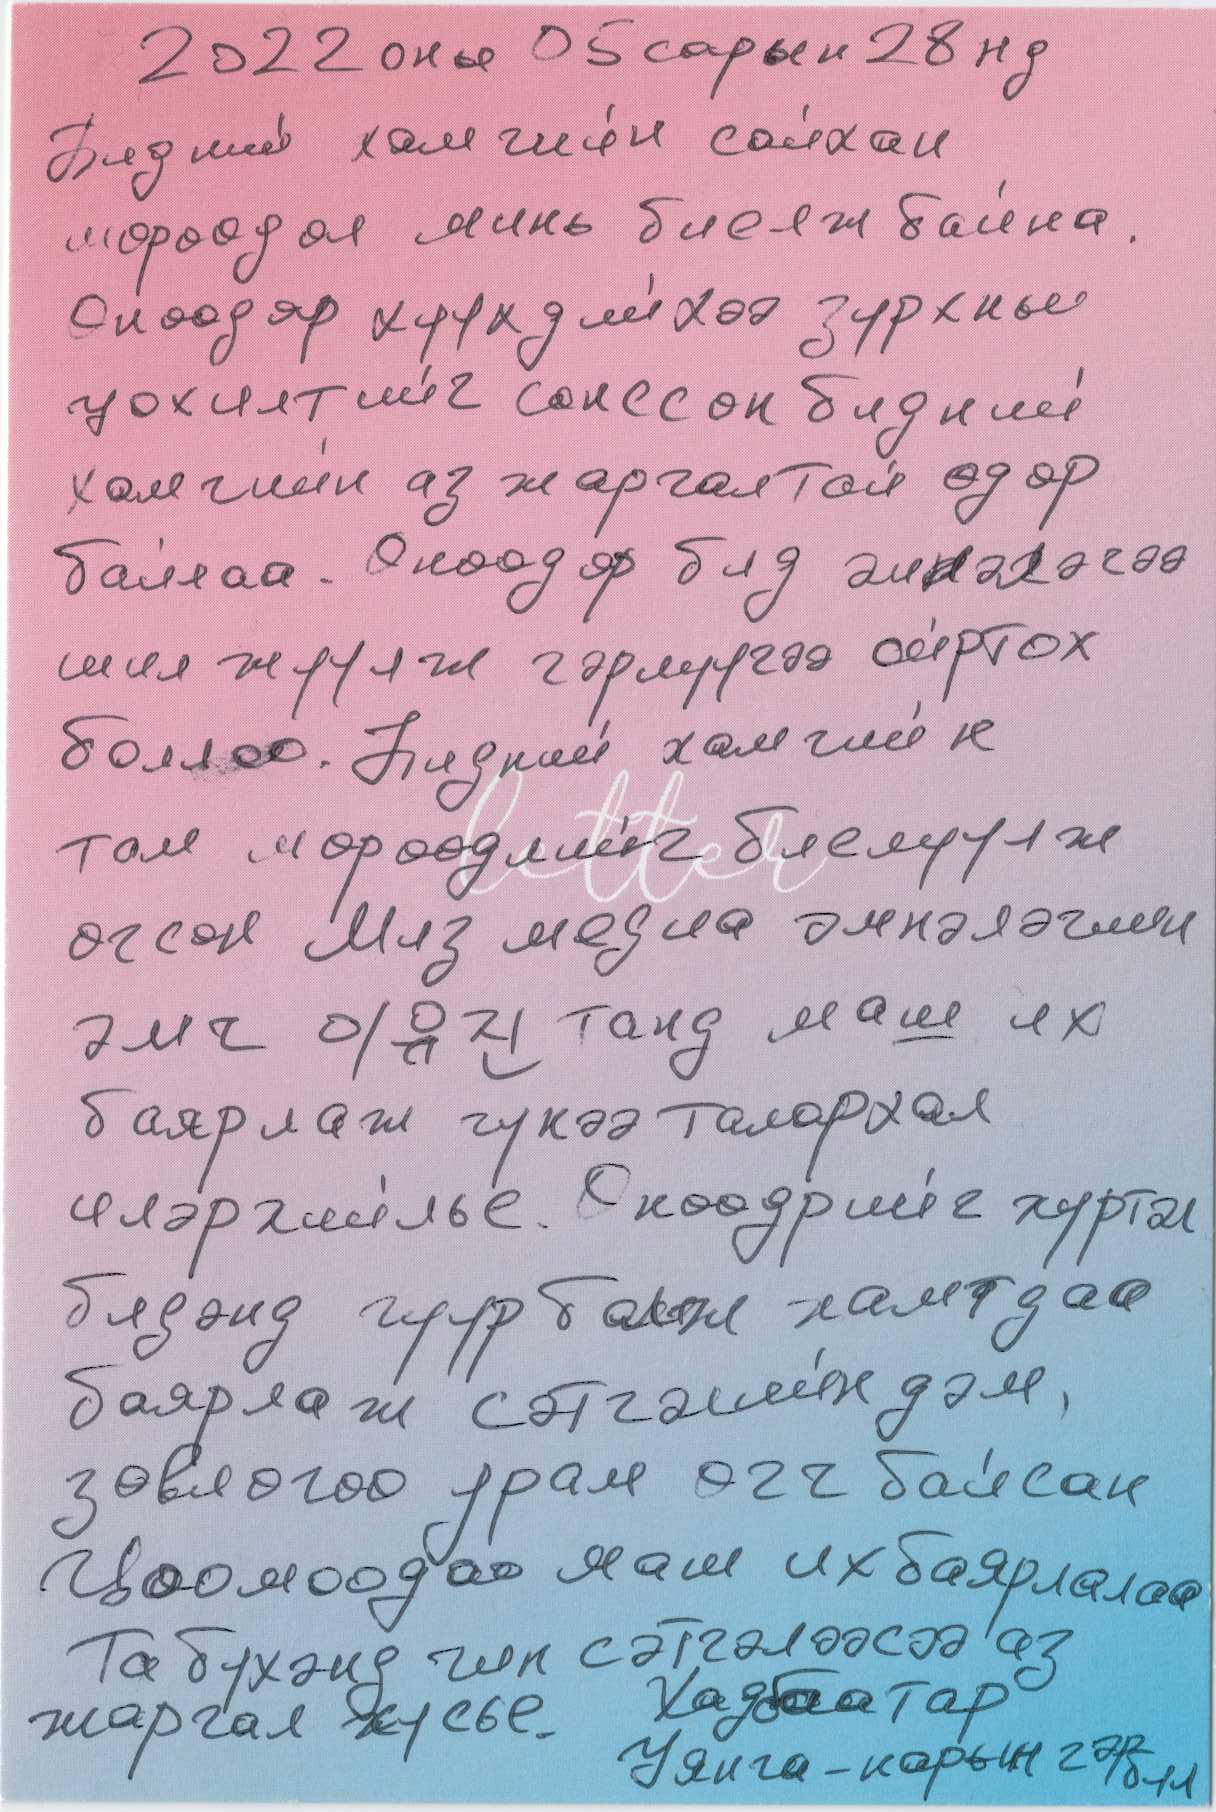 2022 оны 05 сарын 28 нд
Бидний хамгийн сайхан
мөрөөдөл минь биелж байна.
Өнөөдөр хүүхдийхээ зүрхний
цохилтийг сонссон бидний
хамгийн аз жаргалтай өдөр
байлаа. Өнөөдөр бид эмнэлэгээ
шилжүүлж гэрлүүгээ ойртох
боллоо. Бидний хамгийн
том мөрөөдлийг биелүүлж
letter
өгсөн Миз медиа эмнэлэгийн
эмч 이유진 танд маш их
баярлаж гүнээ талархал
илэрхийлье. Өнөөдрийг хүртэл
бидэнд гүүр болж хамтдаа
баярлаж сэтгэлийн дэм,
зөвлөгөө урам өгч байсан
Цоомоодоо маш их баярлалаа
Та бүхэнд чин сэтгэлээсээ аз
жаргал хүсье. Хадбаатар
Уянга-нарын гэр бүл